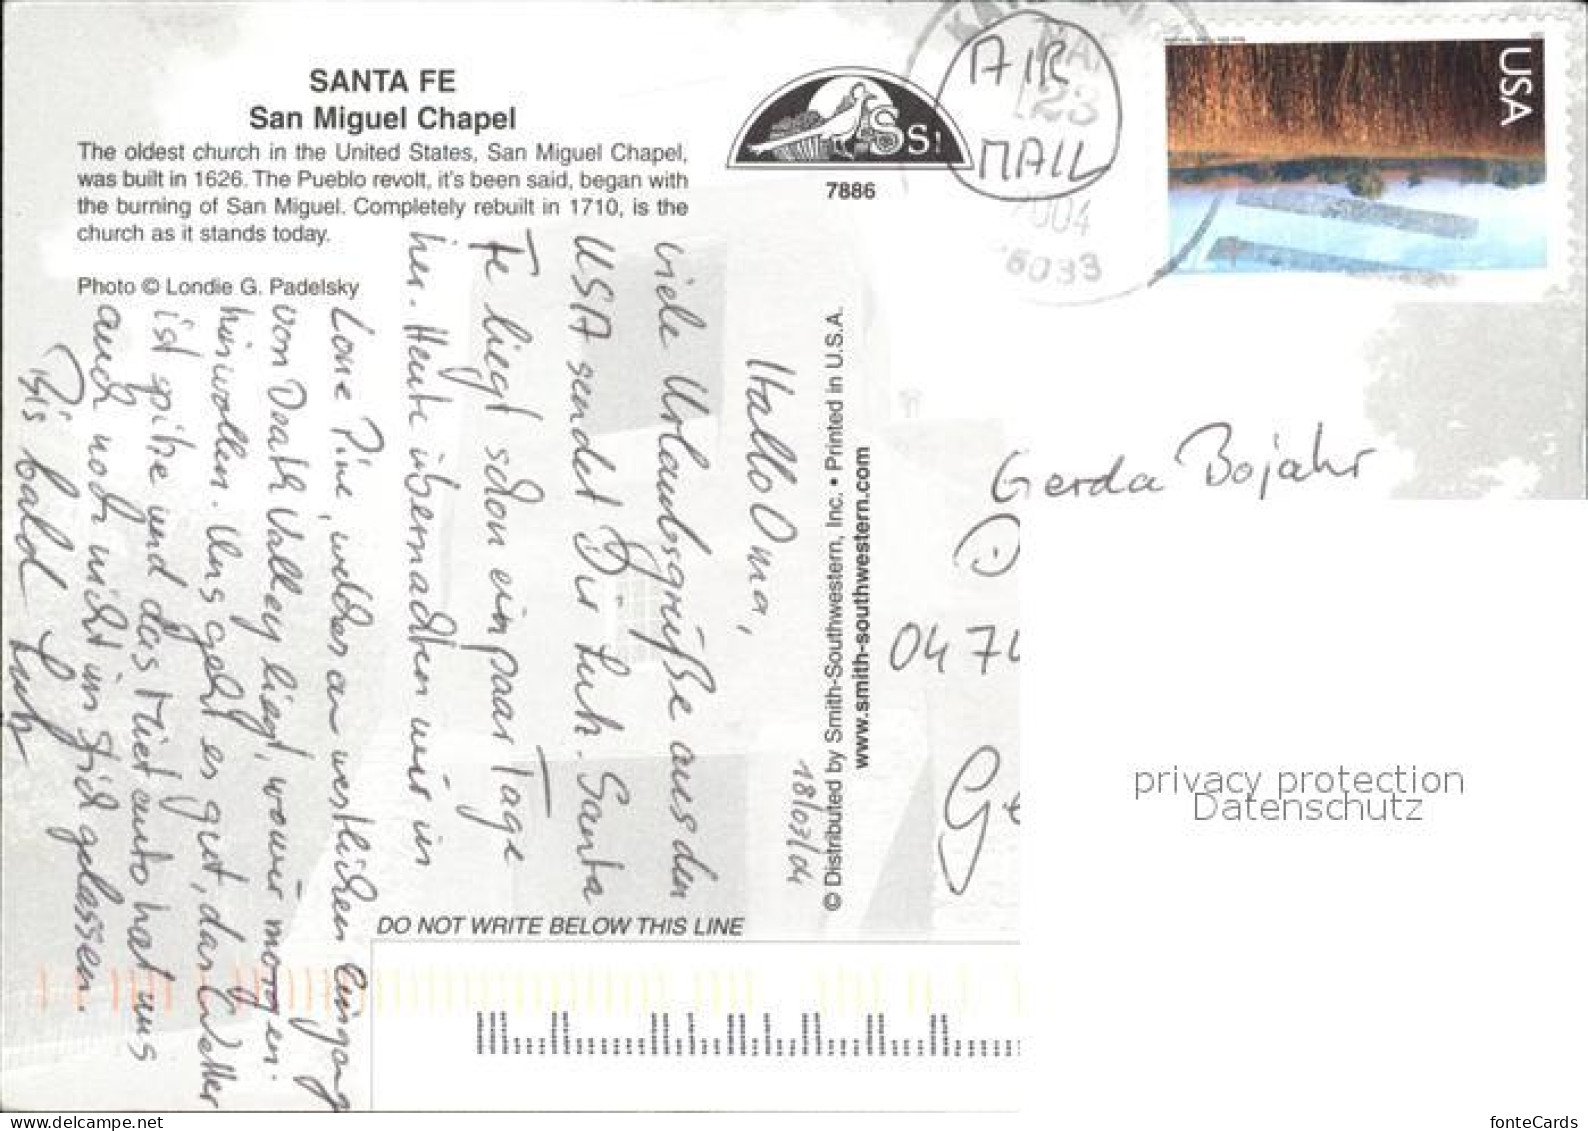 SANTA FE
San Miguel Chapel
The oldest church in the United States, San Miguel Chapel,
was built in 1626. The Pueblo revolt, it's been said, began with
the burning of San Miguel. Completely rebuilt in 1710, is the
church as it stands today.
Photo © Londie G. Padelsky
SS!
7886
AIR
MAIL
MAR
23
2004
USA
© Distributed by Smith-Southwestern, Inc. • Printed in U.S.A.
www.smith-southwestern.com
18/03/04
Hallo Oma,
viele Urlaubsgrüße aus den
USA sendet Dir Lutz. Santa
Fe liegt schon ein paar Tage
her. Heute übernachten wir in
Lone Pine, welches am westlichen Eingang
von Death Valley liegt, wo wir morgen
hin wollen. Uns geht es gut, das Wetter
ist spitze und das Mietauto hat uns
auch noch nicht im Stich gelassen.
Bis bald Lutz
Gerda Bojahr
D
047
Ge
DO NOT WRITE BELOW THIS LINE
privacy protection
Datenschutz
www.delcampe.net
fonteCards